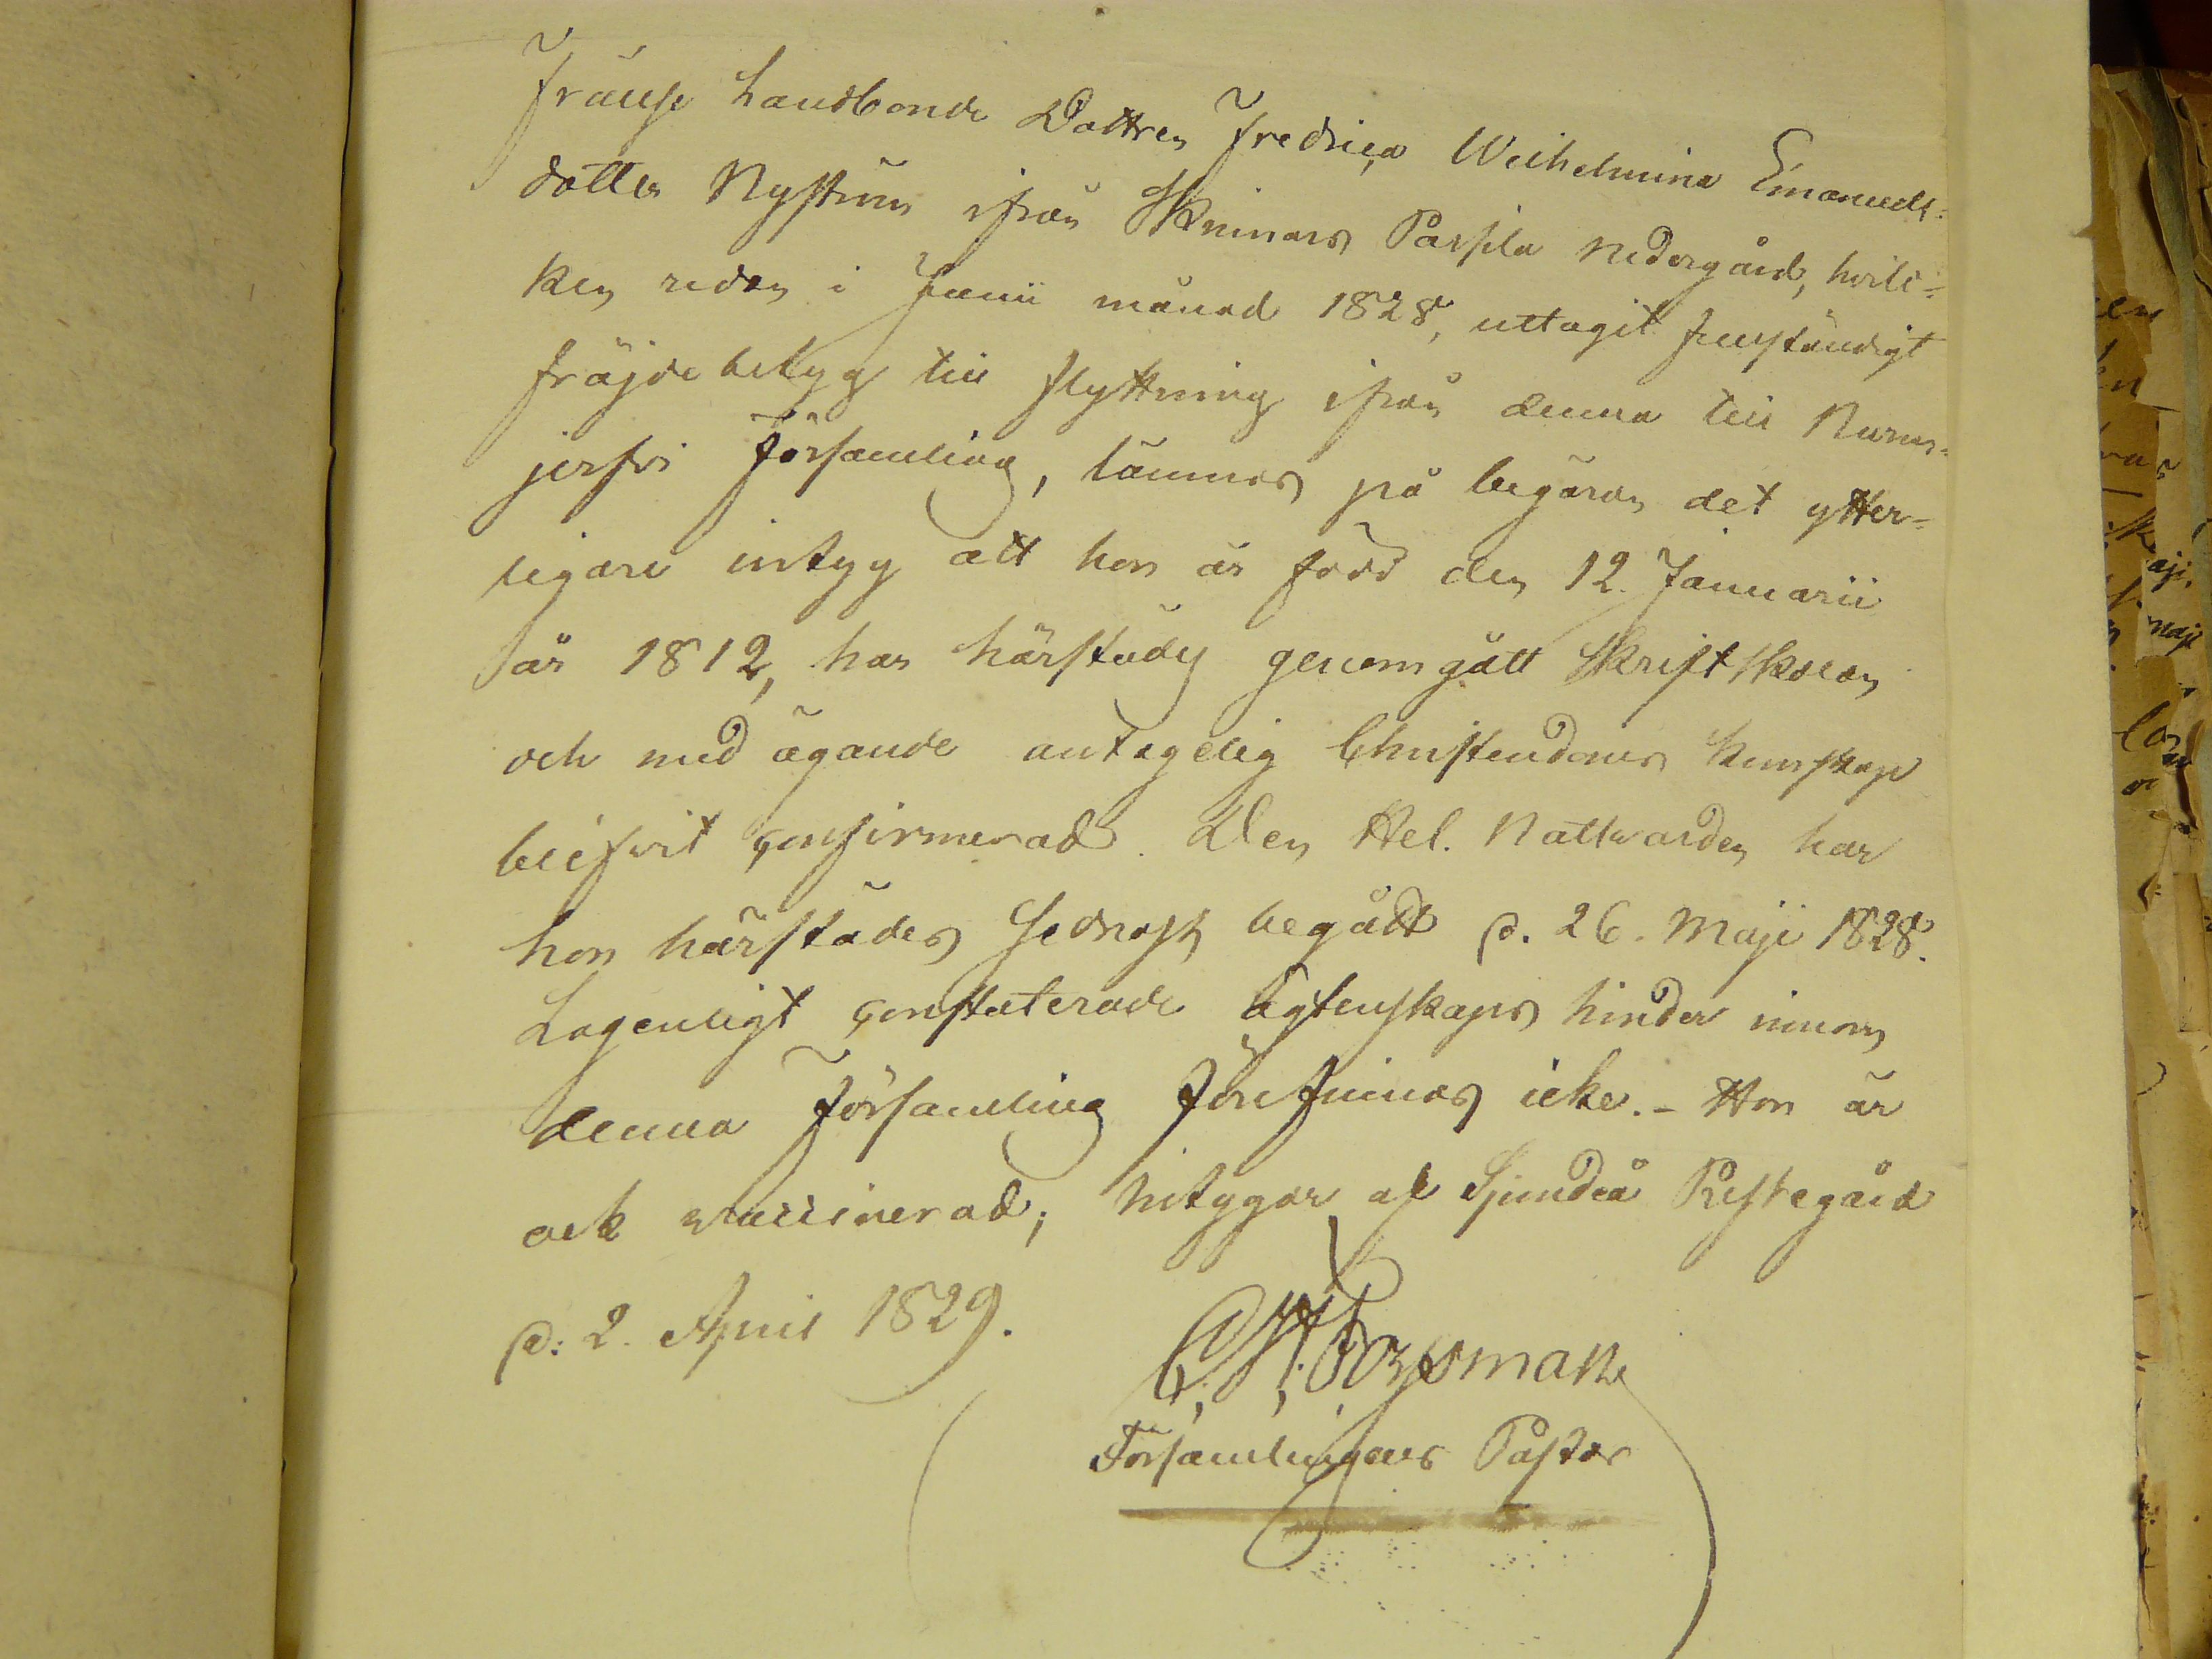 Frälse Landbonde Dottren Fredrica Wilhelmina Emanuels-
dotter Nyström ifrån Skinnars Parsila nedergård, hvil-
ken redan i Junii månad 1828, uttagit fullständigt
fräjdebetyg till flyttning ifrån denna till Nurm-
jerfvi Församling, lämnas på begäran det ytter-
ligare intyg att hon är född den 12. Januarii
år 1812, har härstädes genomgått Skriftskolan
och med ägande antagelig Christendoms kunskap
blifvit confirmerad. Den Hel. Nattvarden har
hon härstädes sednast begått d. 26. Maji 1828.
Lagenligt constaterade ägtenskaps hinder innom
denna Församling förefinnas icke. - Hon är
ock vaccinerad; intygar af Sjundeå Prestegård
d: 2. April 1829.
C. H. Forssman
Församlingens Pastor